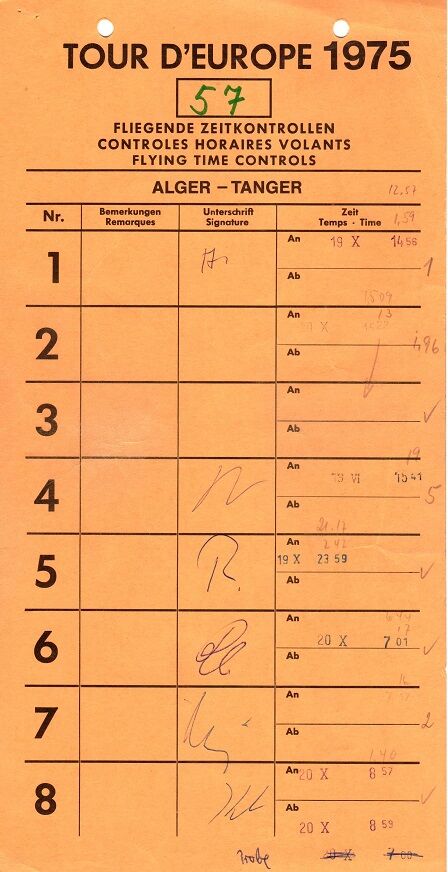 TOUR D'EUROPE 1975
57
FLIEGENDE ZEITKONTROLLEN
CONTROLES HORAIRES VOLANTS
FLYING TIME CONTROLS
ALGER – TANGER
12,57
Nr. Bemerkungen Remarques Unterschrift Signature Zeit Temps · Time 1,59
1 An 19 X 14 56
Ab 1
1509
2 An 13
X
Ab 1,96
3 An
Ab ✓
19
4 An 19 VI 15 41
Ab 5
21.17
242
5 An 19 X 23 59
Ab ✓
6 An 17
20 X 7 01
Ab ✓
7 An
Ab 2
140
8 An 20 X 8 57
Ab
20 X 8 59
20 X 7 00